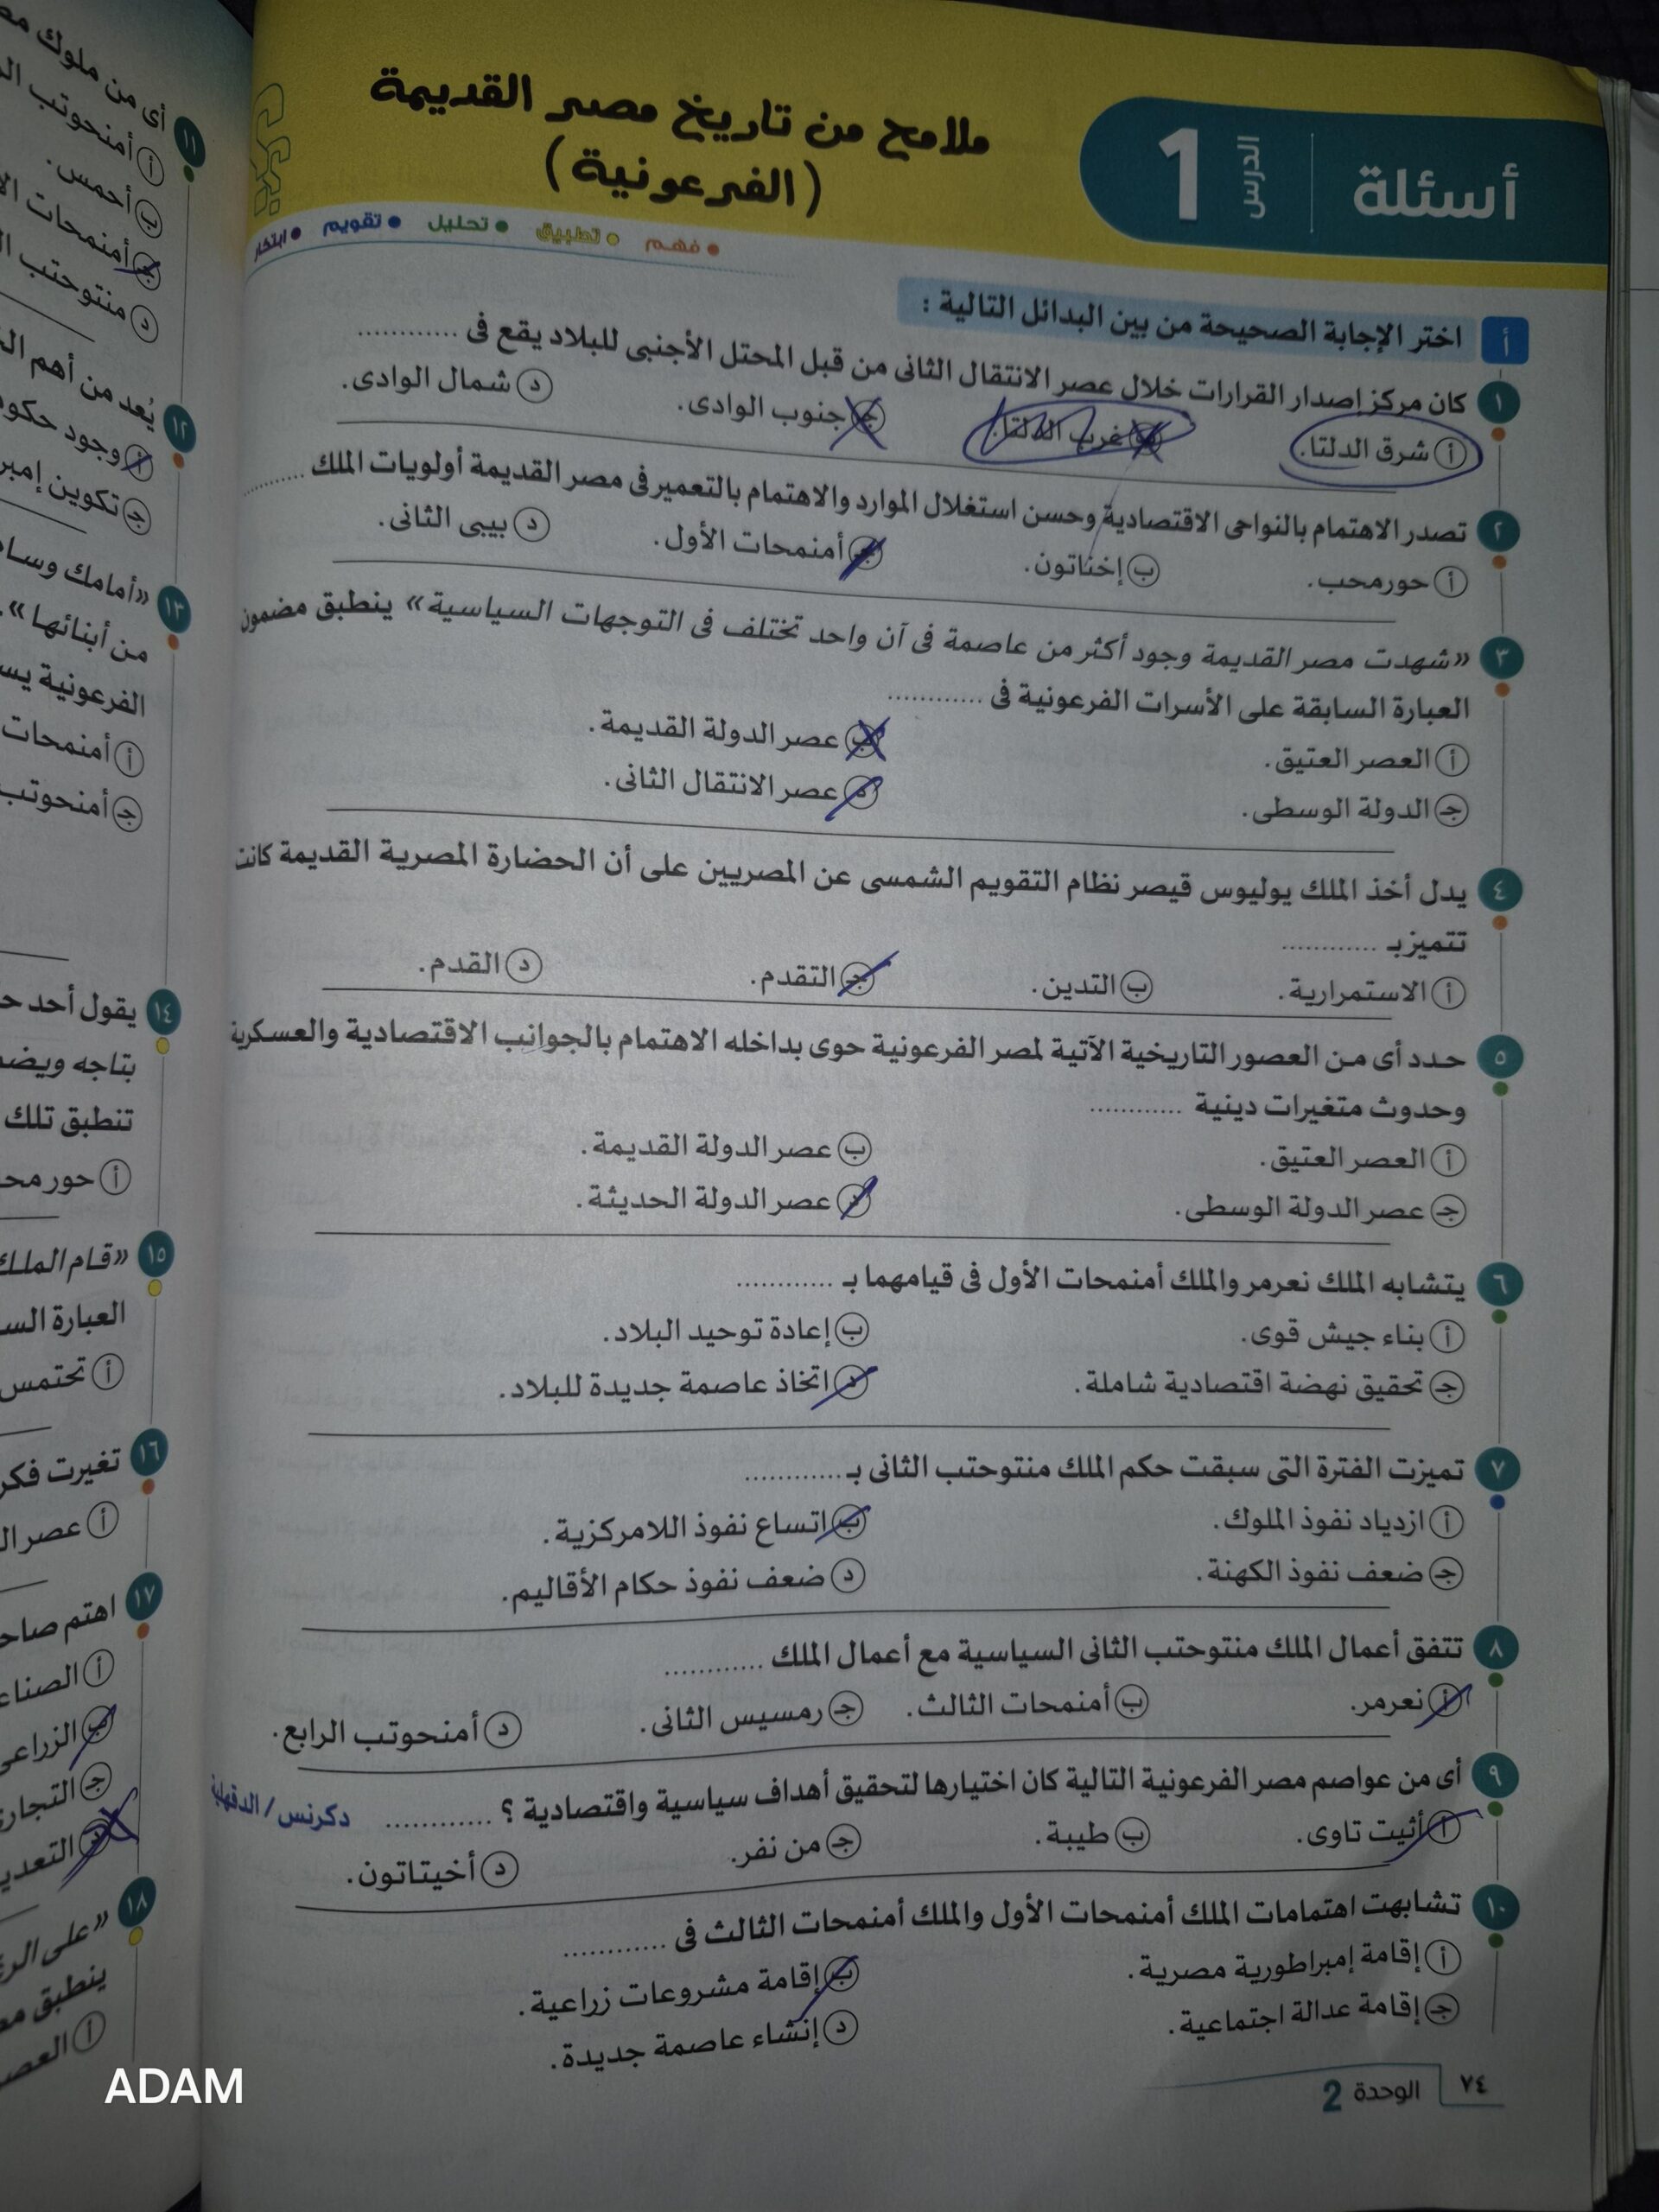 أسئلة
الدرس 1
ملامح من تاريخ مصر القديمة
(الفرعونية)
● فهم ● تطبيق ● تحليل ● تقويم ● ابتكار
أ اختر الإجابة الصحيحة من بين البدائل التالية :
١ كان مركز إصدار القرارات خلال عصر الانتقال الثانى من قبل المحتل الأجنبى للبلاد يقع فى ............
أ شرق الدلتا. ب غرب الدلتا. جـ جنوب الوادى. د شمال الوادى.
٢ تصدر الاهتمام بالنواحى الاقتصادية وحسن استغلال الموارد والاهتمام بالتعمير فى مصر القديمة أولويات الملك ............
أ حور محب. ب إخناتون. جـ أمنمحات الأول. د بيبى الثانى.
٣ «شهدت مصر القديمة وجود أكثر من عاصمة فى آن واحد تختلف فى التوجهات السياسية» ينطبق مضمون
العبارة السابقة على الأسرات الفرعونية فى ............
أ العصر العتيق. ب عصر الدولة القديمة.
جـ الدولة الوسطى. د عصر الانتقال الثانى.
٤ يدل أخذ الملك يوليوس قيصر نظام التقويم الشمسى عن المصريين على أن الحضارة المصرية القديمة كانت
تتميز بـ ............
أ الاستمرارية. ب التدين. جـ التقدم. د القدم.
٥ حدد أى من العصور التاريخية الآتية لمصر الفرعونية حوى بداخله الاهتمام بالجوانب الاقتصادية والعسكرية
وحدوث متغيرات دينية ............
أ العصر العتيق. ب عصر الدولة القديمة.
جـ عصر الدولة الوسطى. د عصر الدولة الحديثة.
٦ يتشابه الملك نعرمر والملك أمنمحات الأول فى قيامهما بـ ............
أ بناء جيش قوى. ب إعادة توحيد البلاد.
جـ تحقيق نهضة اقتصادية شاملة. د اتخاذ عاصمة جديدة للبلاد.
٧ تميزت الفترة التى سبقت حكم الملك منتوحتب الثانى بـ ............
أ ازدياد نفوذ الملوك. ب اتساع نفوذ اللامركزية.
جـ ضعف نفوذ الكهنة. د ضعف نفوذ حكام الأقاليم.
٨ تتفق أعمال الملك منتوحتب الثانى السياسية مع أعمال الملك ............
أ نعرمر. ب أمنمحات الثالث. جـ رمسيس الثانى. د أمنحوتب الرابع.
٩ أى من عواصم مصر الفرعونية التالية كان اختيارها لتحقيق أهداف سياسية واقتصادية ؟ ............ دكرنس / الدقهلية
أ أثيت تاوى. ب طيبة. جـ من نفر. د أخيتاتون.
١٠ تشابهت اهتمامات الملك أمنمحات الأول والملك أمنمحات الثالث فى ............
أ إقامة إمبراطورية مصرية. ب إقامة مشروعات زراعية.
جـ إقامة عدالة اجتماعية. د إنشاء عاصمة جديدة.
٧٤ الوحدة 2
١١ أى من ملوك
أ أمنحوتب
ب أحمس.
جـ أمنمحات
د منتوحتب
١٢ يُعد من أهم
أ وجود
جـ تكوين
١٣ «أمامك
من أبنائها»
الفرعونية
أ أمنمحات
جـ أمنحوتب
١٤ يقول أحد
بتاجه
تنطبق تلك
أ حور
١٥ «قام الملك
العبارة
أ تحتمس
١٦ تغيرت
أ عصر
١٧ اهتم
أ
ب
جـ
د
١٨ «على
ينطبق
أ
ADAM